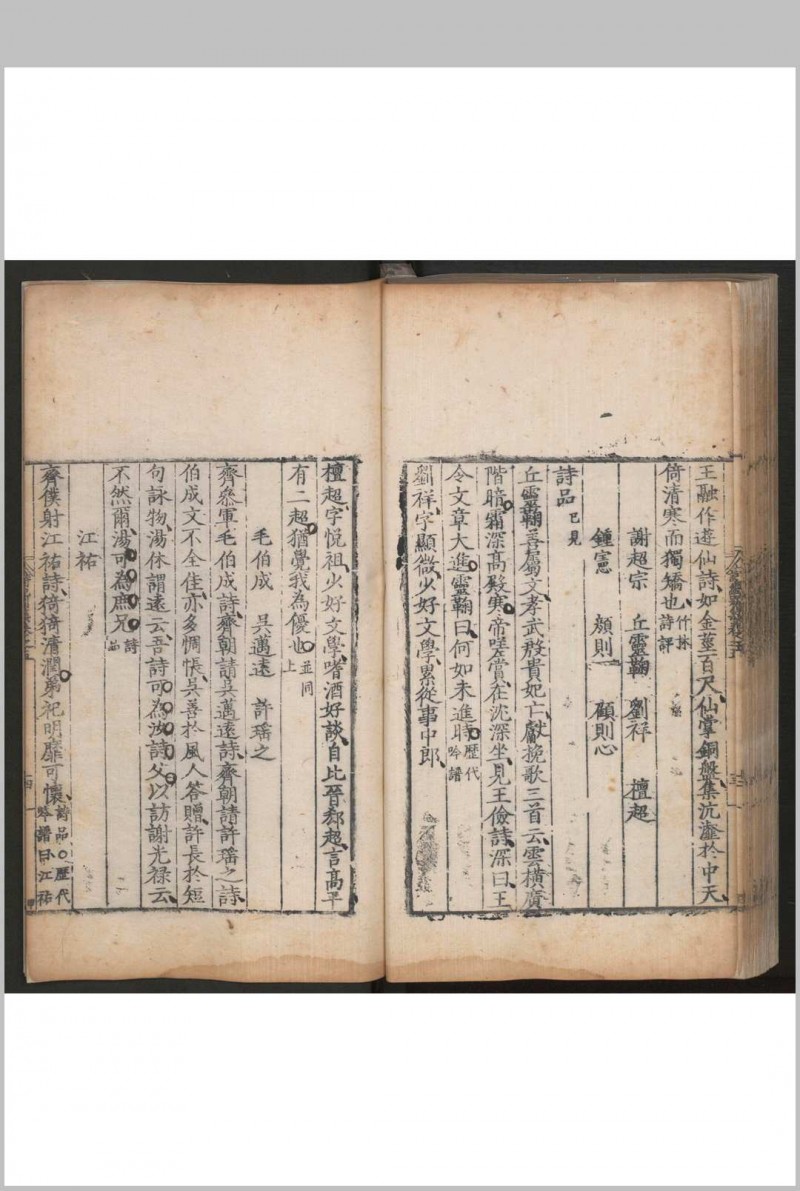 王融作遊仙詩如金莖百尺仙掌銅盤集沆瀣於中天
倚清寒而獨矯也竹林詩評
謝超宗 丘靈鞠 劉祥 檀超
鍾憲 顏則 顧則心
詩品已見
丘靈鞠善屬文孝武殷貴妃亡獻挽歌三首云雲橫廣
階暗霜深高殿寒帝嗟賞在沈深坐見王儉詩深曰王
令文章大進靈鞠曰何如未進時歷代吟譜
劉祥字顯微少好文學累從事中郎
檀超字悅祖少好文學嗜酒好談自比晉郗超言高平
有二超猶覺我為優也並同上
毛伯成 吳邁遠 許瑤之
齊參軍毛伯成詩齊朝請吳邁遠詩齊朝請許瑤之詩
伯成文不全佳亦多惆悵吳善於風人答贈許長於短
句詠物湯休謂遠云吾詩可為汝詩父以訪謝光祿云
不然爾湯可為庶兄詩品
江祐
齊僕射江祐詩猗猗清潤弟祀明靡可懷詩品○歷代吟譜曰江祐